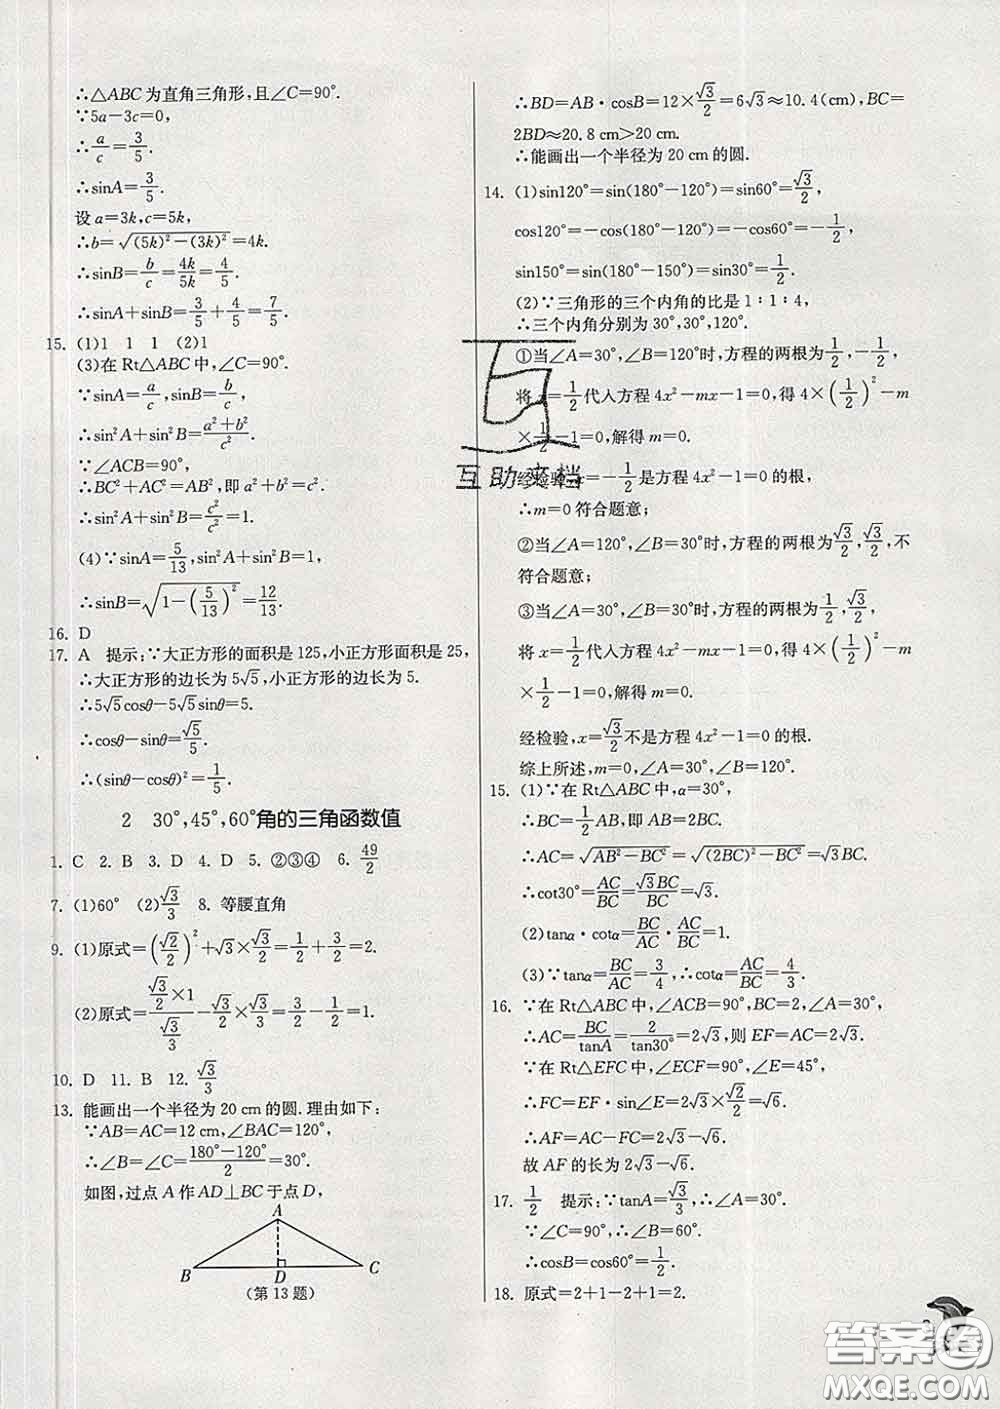 ∴△ABC为直角三角形,且∠C=90°.
∵5a-3c=0,
∴a/c=3/5.
∴sinA=3/5.
设a=3k,c=5k,
∴b=√((5k)²-(3k)²)=4k.
∴sinB=b/c=4k/5k=4/5.
∴sinA+sinB=3/5+4/5=7/5.
15. (1)1 1 1 (2)1
(3)在Rt△ABC中,∠C=90°.
∵sinA=a/c,sinB=b/c.
∴sin²A+sin²B=(a²+b²)/c².
∵∠ACB=90°,
∴BC²+AC²=AB²,即a²+b²=c².
∴sin²A+sin²B=c²/c²=1.
(4)∵sinA=5/13,sin²A+sin²B=1,
∴sinB=√(1-(5/13)²)=12/13.
16. D
17. A 提示:∵大正方形的面积是125,小正方形面积是25,
∴大正方形的边长为5√5,小正方形的边长为5.
∴5√5cosθ-5√5sinθ=5.
∴cosθ-sinθ=√5/5.
∴(sinθ-cosθ)²=1/5.
2 30°,45°,60°角的三角函数值
1. C 2. B 3. D 4. D 5. ②③④ 6. 49/2
7. (1)60° (2)√3/3 8. 等腰直角
9. (1)原式=(√2/2)²+√3×√3/2=1/2+3/2=2.
(2)原式=(√3/2×1)/(√3/3)-√3/2×√3/3=3/2-1/2=1.
10. D 11. B 12. √3/3
13. 能画出一个半径为20 cm的圆.理由如下:
∵AB=AC=12 cm,∠BAC=120°,
∴∠B=∠C=(180°-120°)/2=30°.
如图,过点A作AD⊥BC于点D,
A
B D C
(第13题)
∴BD=AB·cosB=12×√3/2=6√3≈10.4(cm),BC=
2BD≈20.8 cm>20 cm.
∴能画出一个半径为20 cm的圆.
14. (1)sin120°=sin(180°-120°)=sin60°=√3/2,
cos120°=-cos(180°-120°)=-cos60°=-1/2,
sin150°=sin(180°-150°)=sin30°=1/2.
(2)∵三角形的三个内角的比是1:1:4,
∴三个内角分别为30°,30°,120°.
①当∠A=30°,∠B=120°时,方程的两根为1/2,-1/2,
将x=1/2代入方程4x²-mx-1=0,得4×(1/2)²-m
×1/2-1=0,解得m=0.
经检验x=-1/2是方程4x²-1=0的根,
∴m=0符合题意;
②当∠A=120°,∠B=30°时,方程的两根为√3/2,√3/2,不
符合题意;
③当∠A=30°,∠B=30°时,方程的两根为1/2,√3/2,
将x=1/2代入方程4x²-mx-1=0,得4×(1/2)²-m
×1/2-1=0,解得m=0.
经检验,x=√3/2不是方程4x²-1=0的根.
综上所述,m=0,∠A=30°,∠B=120°.
15. (1)∵在Rt△ABC中,α=30°,
∴BC=1/2AB,即AB=2BC.
∴AC=√(AB²-BC²)=√((2BC)²-BC²)=√3BC.
∴cot30°=AC/BC=√3BC/BC=√3.
(2)tanα·cotα=BC/AC·AC/BC=1.
(3)∵tanα=BC/AC=3/4,∴cotα=AC/BC=4/3.
16. ∵在Rt△ABC中,∠ACB=90°,BC=2,∠A=30°,
∴AC=BC/tanA=2/tan30°=2√3,则EF=AC=2√3.
∵在Rt△EFC中,∠ECF=90°,∠E=45°,
∴FC=EF·sin∠E=2√3×√2/2=√6.
∴AF=AC-FC=2√3-√6.
故AF的长为2√3-√6.
17. 1/2 提示:∵tanA=√3/3,∴∠A=30°.
∵∠C=90°,∴∠B=60°.
∴cosB=cos60°=1/2.
18. 原式=2+1-2+1=2.
互助文档
答案圈
MXQE.COM